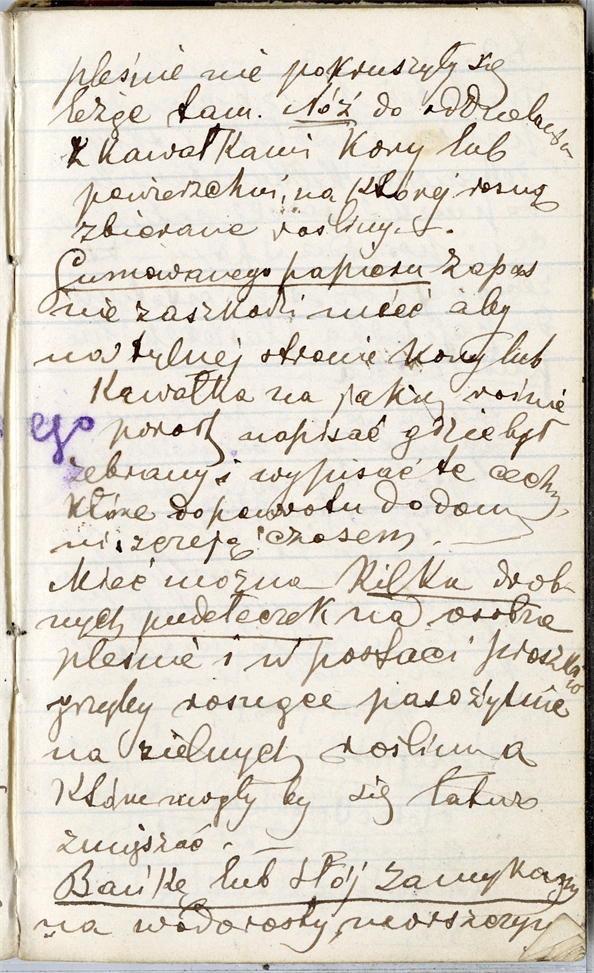 pleśnie nie pokruszyły się
leżąc tam. Nóż do oddzielania
z kawałkami kory lub
powierzchni, na której rosną
zbierane rośliny.
Gumowanego papieru zapas
nie zaszkodzi mieć aby
na tylnej stronie kory lub
kawałka na jakim rośnie
ego
porost napisać gdzie był
zebrany i wypisać te cechy
które do powrotu do domu
zczasem.
Mieć można kilka drob-
nych pudełeczek na osobne
pleśnie i w postaci proszków
grzyby rosnące pasożytnie
na zielnych roślina
które mogły by się łatwo
zmięszać. —
Bańkę lub słój zamykany
na wodorosty, morszczyn